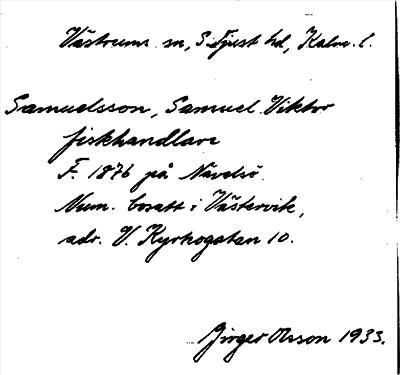 Västrums sn, S. Tjust hd, Kalm. l.
Samuelsson, Samuel Viktor
fiskhandlare
F. 1876 på Navelsö.
Num. bosatt i Västervik,
adr. V. Kyrkogatan 10.
Birger Olsson 1933.